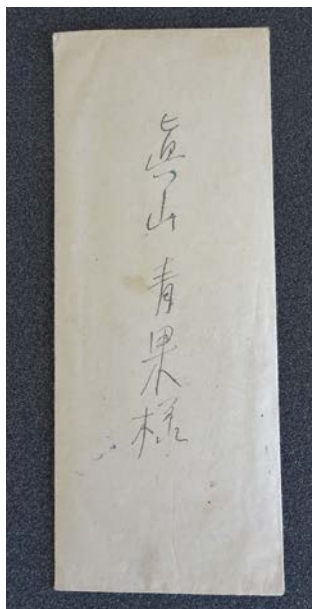 眞山青果様